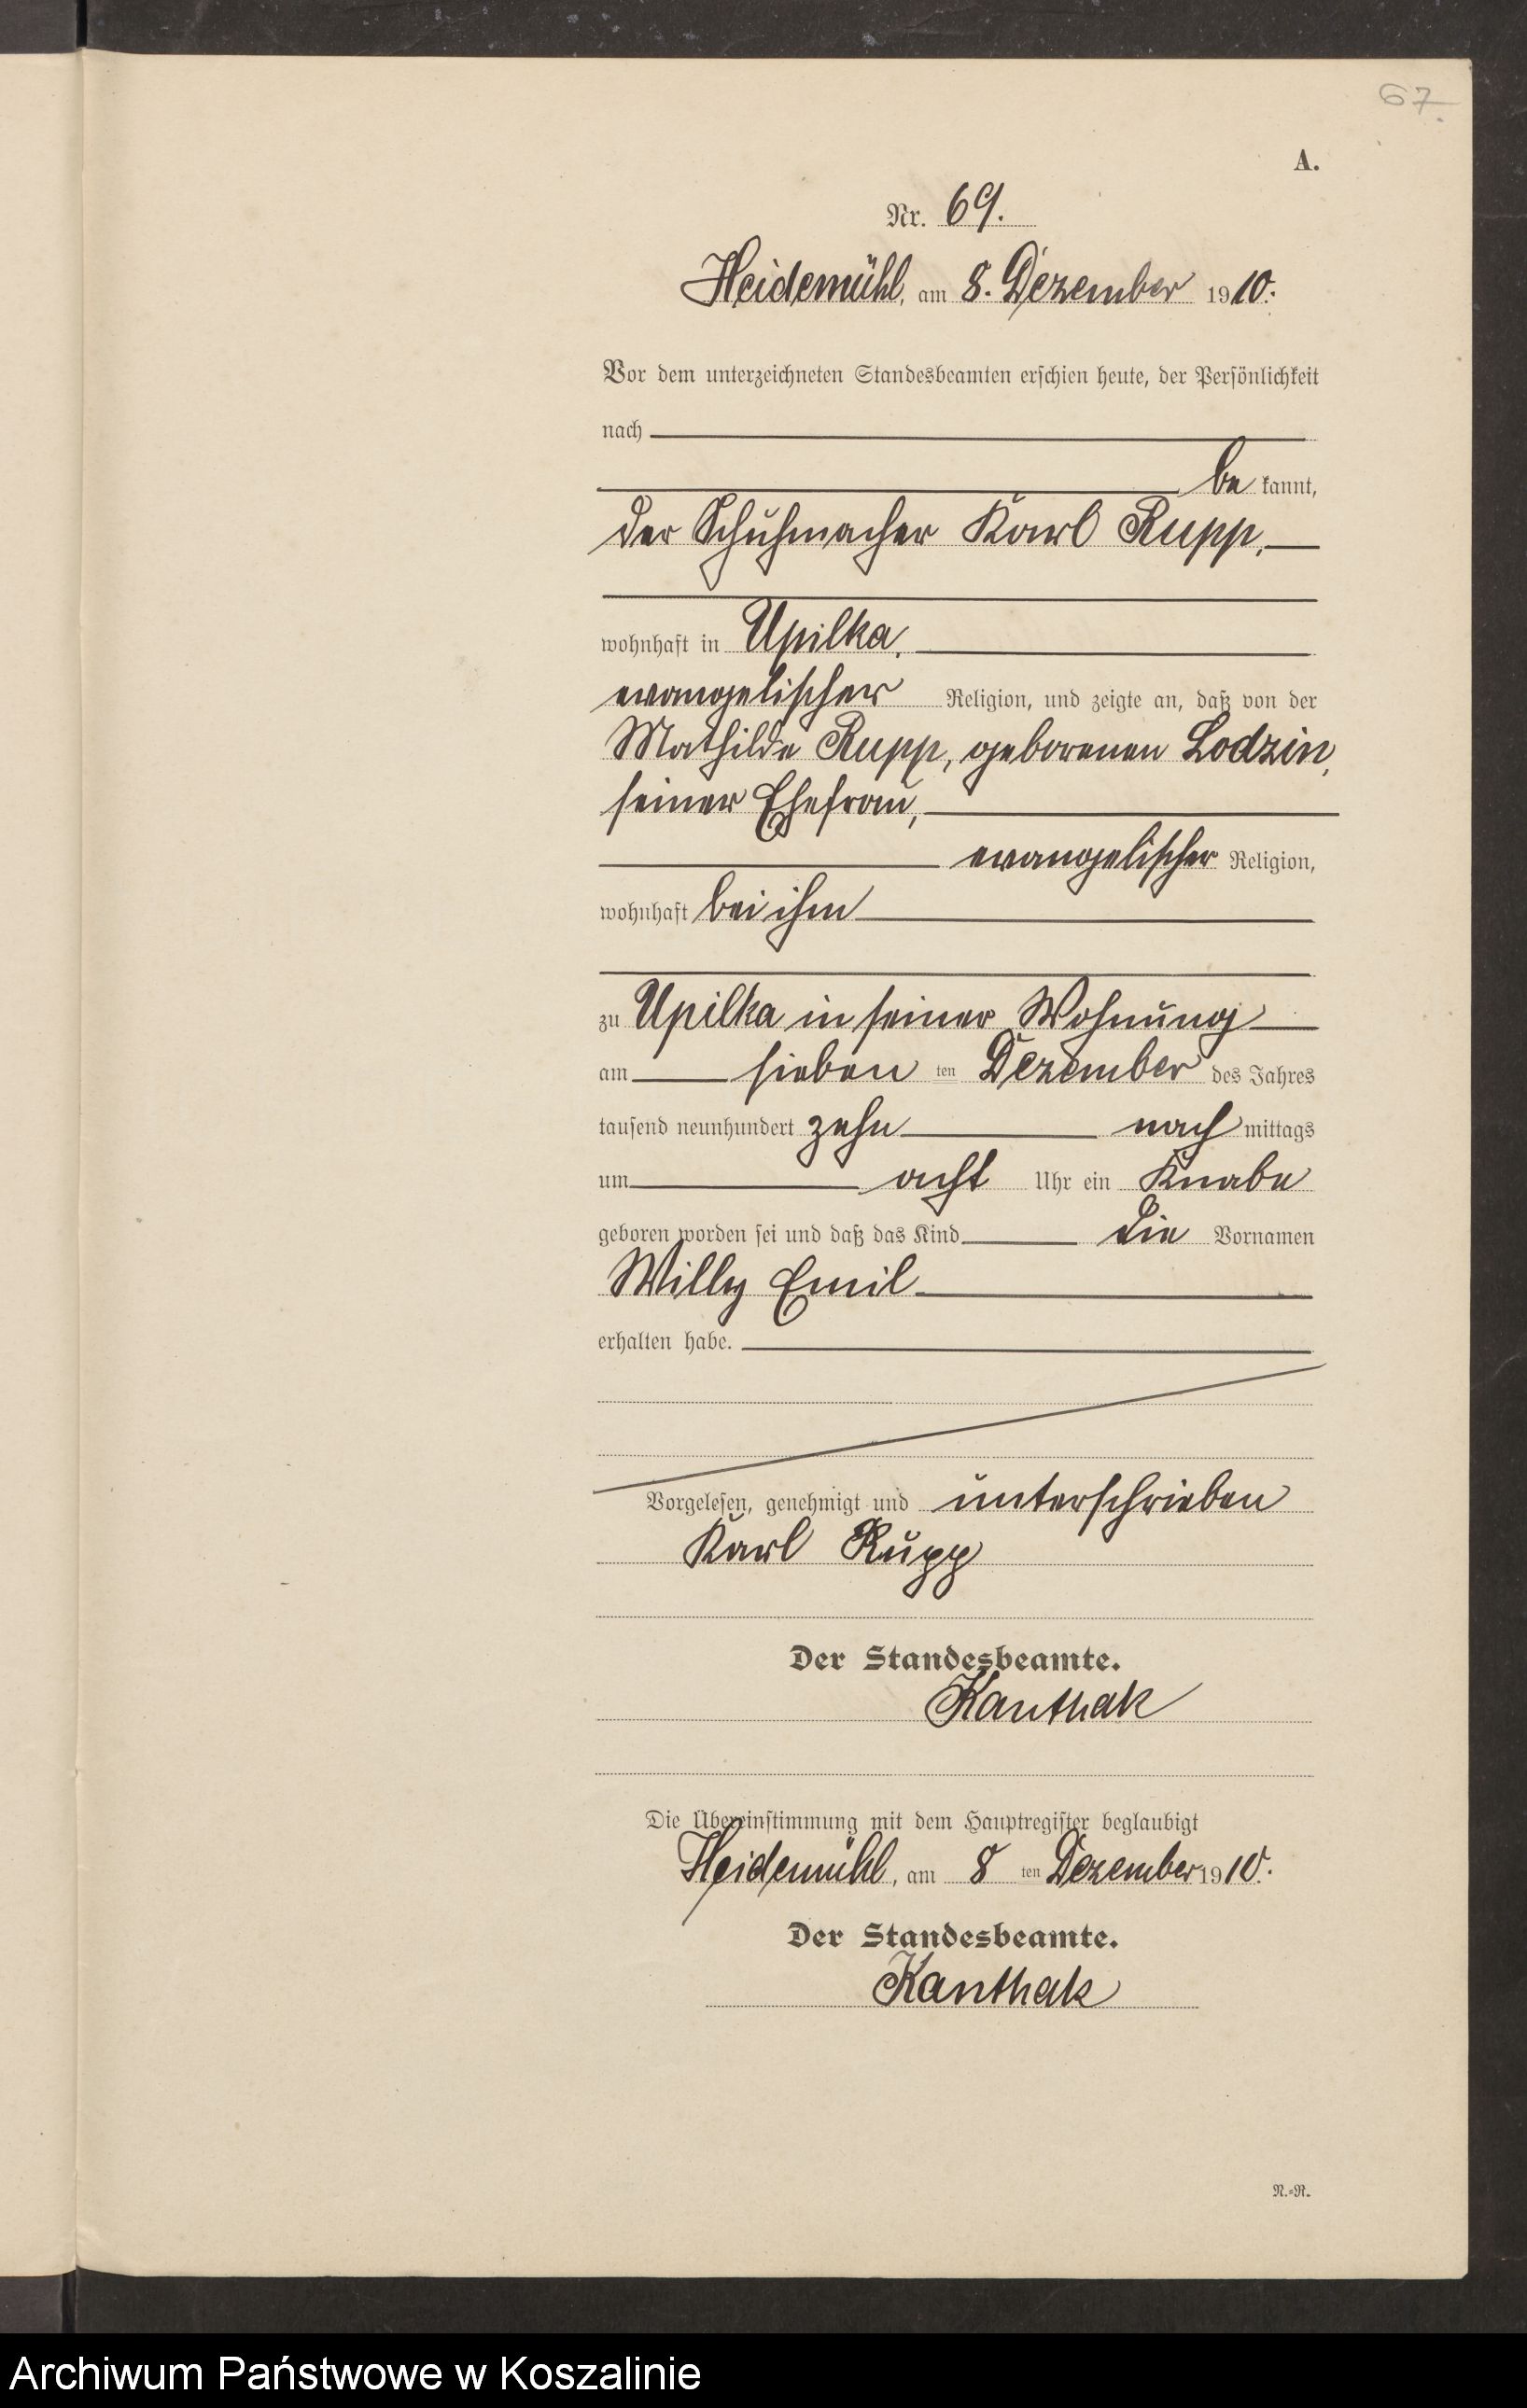 67.
A.
Nr. 69.
Heidemühl, am 8. Dezember 1910.
Vor dem unterzeichneten Standesbeamten erschien heute, der Persönlichkeit
nach
be kannt,
der Schuhmacher Karl Rupp,
wohnhaft in Upilka,
evangelischer Religion, und zeigte an, daß von der
Mathilde Rupp, geborenen Lodzin,
seiner Ehefrau,
evangelischer Religion,
wohnhaft bei ihm
zu Upilka in seiner Wohnung
am sieben ten Dezember des Jahres
tausend neunhundert zehn nach mittags
um acht Uhr ein Knabe
geboren worden sei und daß das Kind die Vornamen
Willy Emil
erhalten habe.
Vorgelesen, genehmigt und unterschrieben
Karl Rupp
Der Standesbeamte.
Kanthak
Die Übereinstimmung mit dem Hauptregister beglaubigt
Heidemühl, am 8 ten Dezember 1910.
Der Standesbeamte.
Kanthak
N.=R.
Archiwum Państwowe w Koszalinie